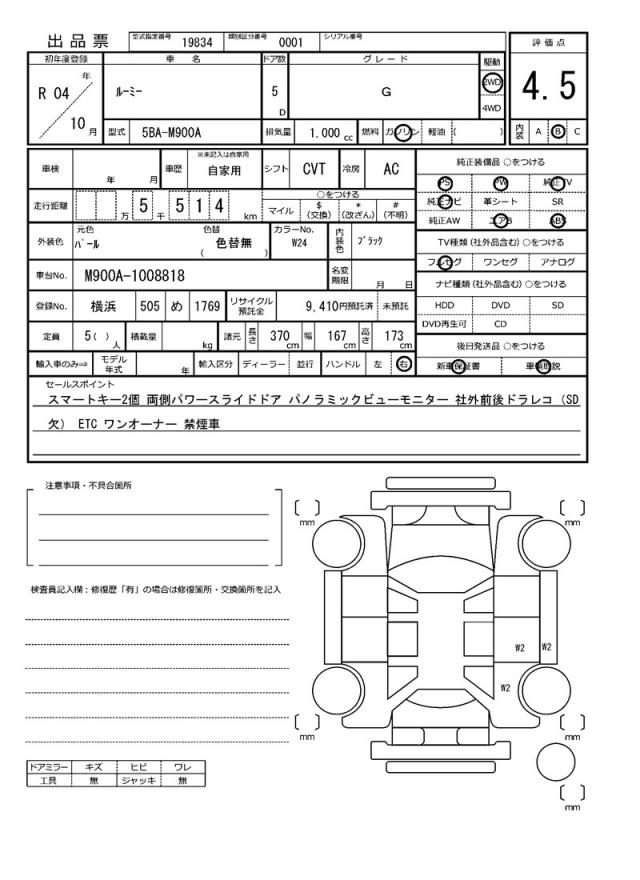 出品票 型式指定番号 19834 類別区分番号 0001 シリアル番号
初年度登録 車名 ドア数 グレード 駆動 評価点
R 04 年 ルーミー 5 D G 2WD 4WD 4.5
10 月 型式 5BA-M900A 排気量 1.000 cc 燃料 ガソリン 軽油 ( ) 内装 A B C
車検 年 月 車歴 ※未記入は自家用 自家用 シフト CVT 冷房 AC 純正装備品 ○をつける
PS PW 純正TV
走行距離 万 5 千 5 1 4 km ○をつける マイル $(交換) *(改ざん) #(不明) 純正ナビ 革シート SR
純正AW エアB ABS
外装色 元色 パール 色替 ( 色替無 ) カラーNo. W24 内装色 ブラック TV種類(社外品含む)○をつける
フルセグ ワンセグ アナログ
車台No. M900A-1008818 名変期限 月 日 ナビ種類(社外品含む)○をつける
登録No. 横浜 505 め 1769 リサイクル預託金 9,410円預託済 未預託 HDD DVD SD
DVD再生可 CD
定員 5( )人 積載量 kg 諸元 長さ 370 cm 幅 167 cm 高さ 173 cm 後日発送品 ○をつける
輸入車のみ⇒ モデル年式 年 輸入区分 ディーラー 並行 ハンドル 左 右 新車保証書 車輌取説
セールスポイント
スマートキー2個 両側パワースライドドア パノラミックビューモニター 社外前後ドラレコ (SD
欠) ETC ワンオーナー 禁煙車
注意事項・不具合箇所
mm mm
検査員記入欄:修復歴「有」の場合は修復箇所・交換箇所を記入
W2 W2
W2
mm mm
ドアミラー キズ ヒビ ワレ
工具 無 ジャッキ 無
mm